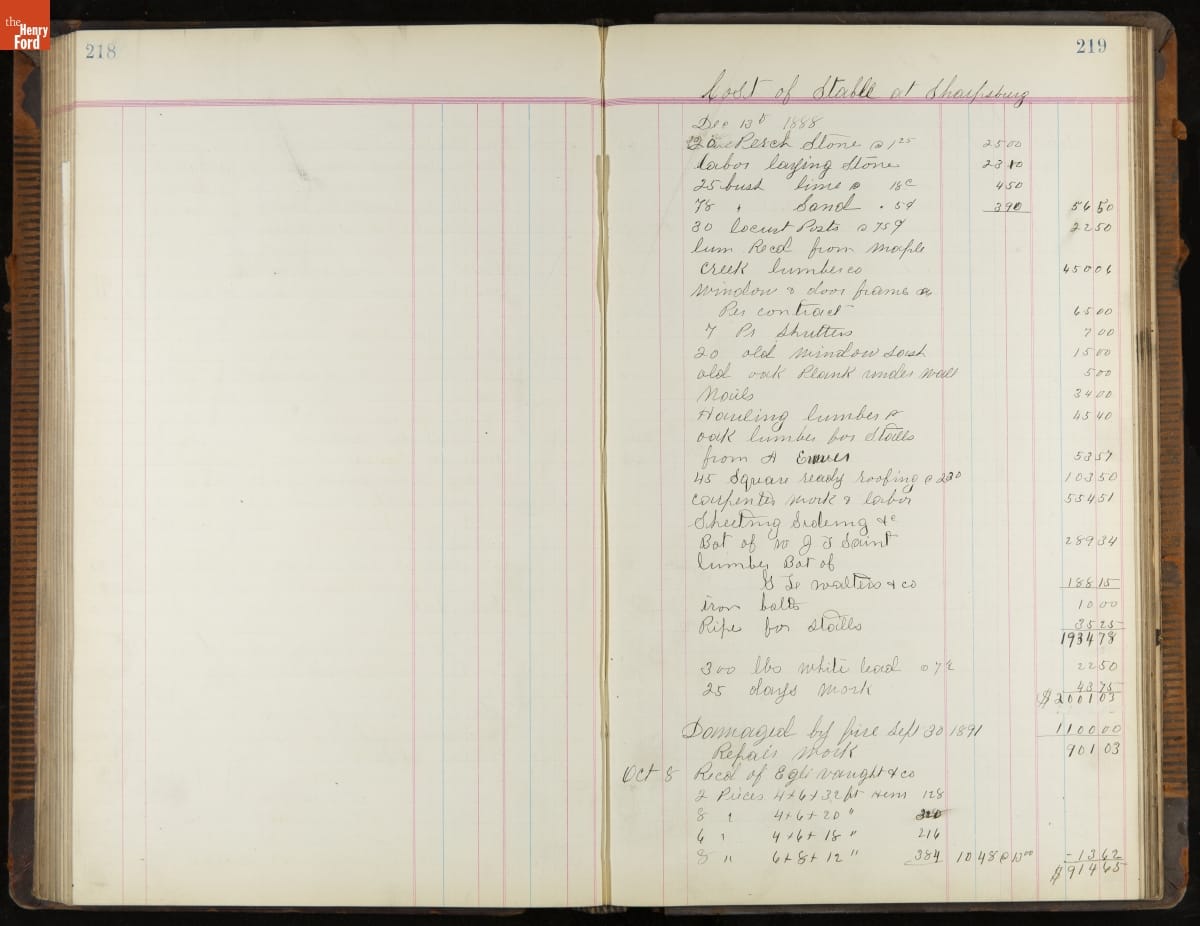 the
Henry
Ford
218
219
Cost of Stable at Sharpsburg
Dec 13th 1888
20 Perch Stone @ 1 25 25 00
labor laying Stone 23 10
25 bush lime @ 18c 4 50
78 " Sand " 5¢ 3 90 56 50
30 locust Posts @ 75¢ 22 50
lum Recd from Maple
Creek lumber co 450 06
Window & door frame as
Per contract 65 00
7 Pr Shutters 7 00
20 old Window Sash 15 00
old oak Plank under wall 5 00
Nails 34 00
Hauling lumber & 45 40
oak lumber for Stalls
from A 53 57
45 Square ready roofing @ 230 103 50
Carpenter work & labor 554 51
Sheeting Sideing &c
Bot of W J T Saint 289 34
lumber Bot of
G Le Walters & co 188 15
iron bolts 10 00
Pipe for Stalls 35 25
1934 78
300 lbs white lead @ 7½ 22 50
25 days work 43 75
$2001 03
Damaged by fire Sept 30 1891 1100 00
Repair Work 901 03
Oct 8 Recd of Egli Vaught & co
2 Pieces 4+6+32 ft Hem 128
8 " 4+6+20 " 320
6 " 4+6+18 " 216
8 " 6+8+12 " 384 1048 @ 13 00 - 13 62
$914 65